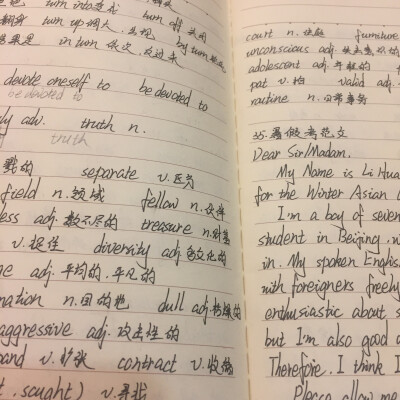 turn into 变成
turn off 关闭
turn up 调大,出现 by turn
in turn 依次,反过来
devote oneself to be devoted to
be devoted to
ly adv. truth n.
truth
separate v.区分
field n.领域 fellow n.伙伴
less adj.数不尽的 treasure n.财富
v.捉住 diversity adj.多文化的
ge adj.平均的,平凡的
nation n.目的地 dull adj.枯燥的
aggressive adj.攻击性的
pand v.扩张 contract v.收缩
t, sought) v.寻找
court n. furniture
unconscious adj.
adolescent adj. 的
pat v.拍 valid adj.
routine n.日常事务
35.暑假考范文
Dear Sir/Madam.
My Name is Li Hua
for the Winter Asian
I'm a boy of seven
student in Beijing
in. My spoken Englis
with foreigners freely
enthusiastic about s
but I'm also good a
Therefore, I think I
Please allow me